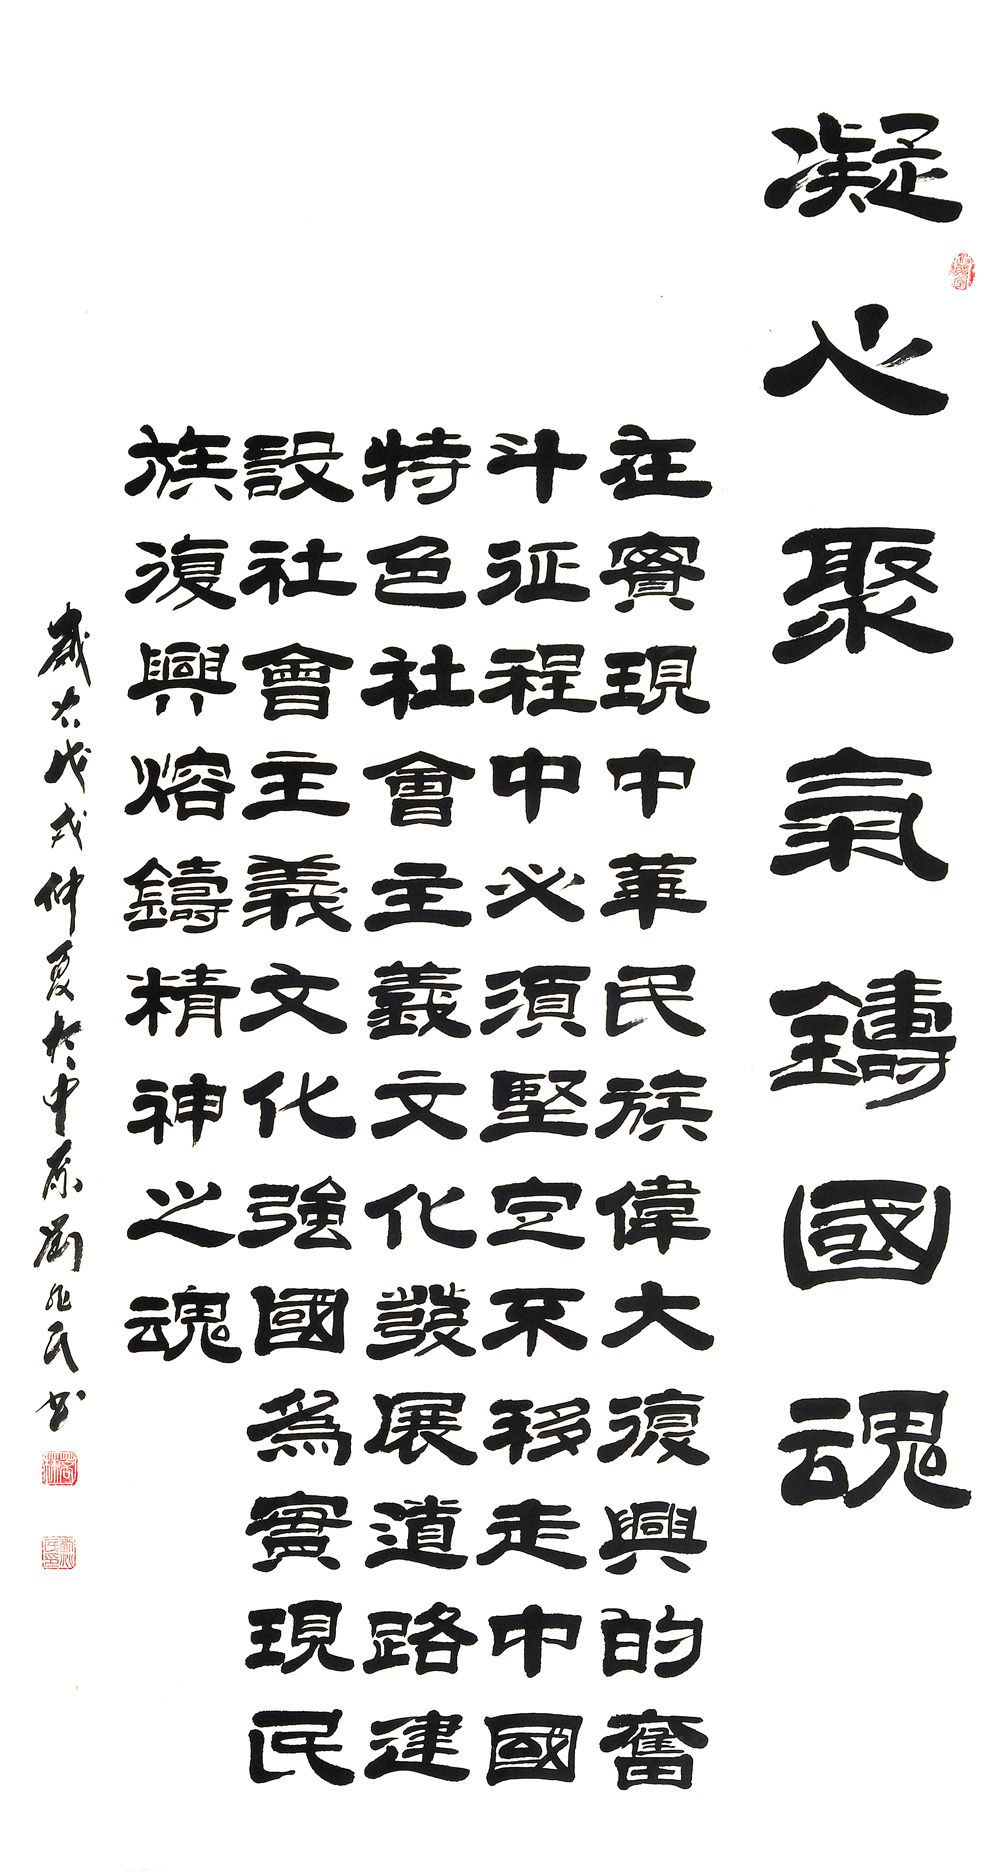 凝心聚氣鑄國魂
在實現中華民族偉大復興的奮
斗征程中必須堅定不移走中國
特色社會主義文化發展道路建
設社會主義文化強國為實現民
族復興熔鑄精神之魂
歲次戊戌仲夏於中原劉兆民书